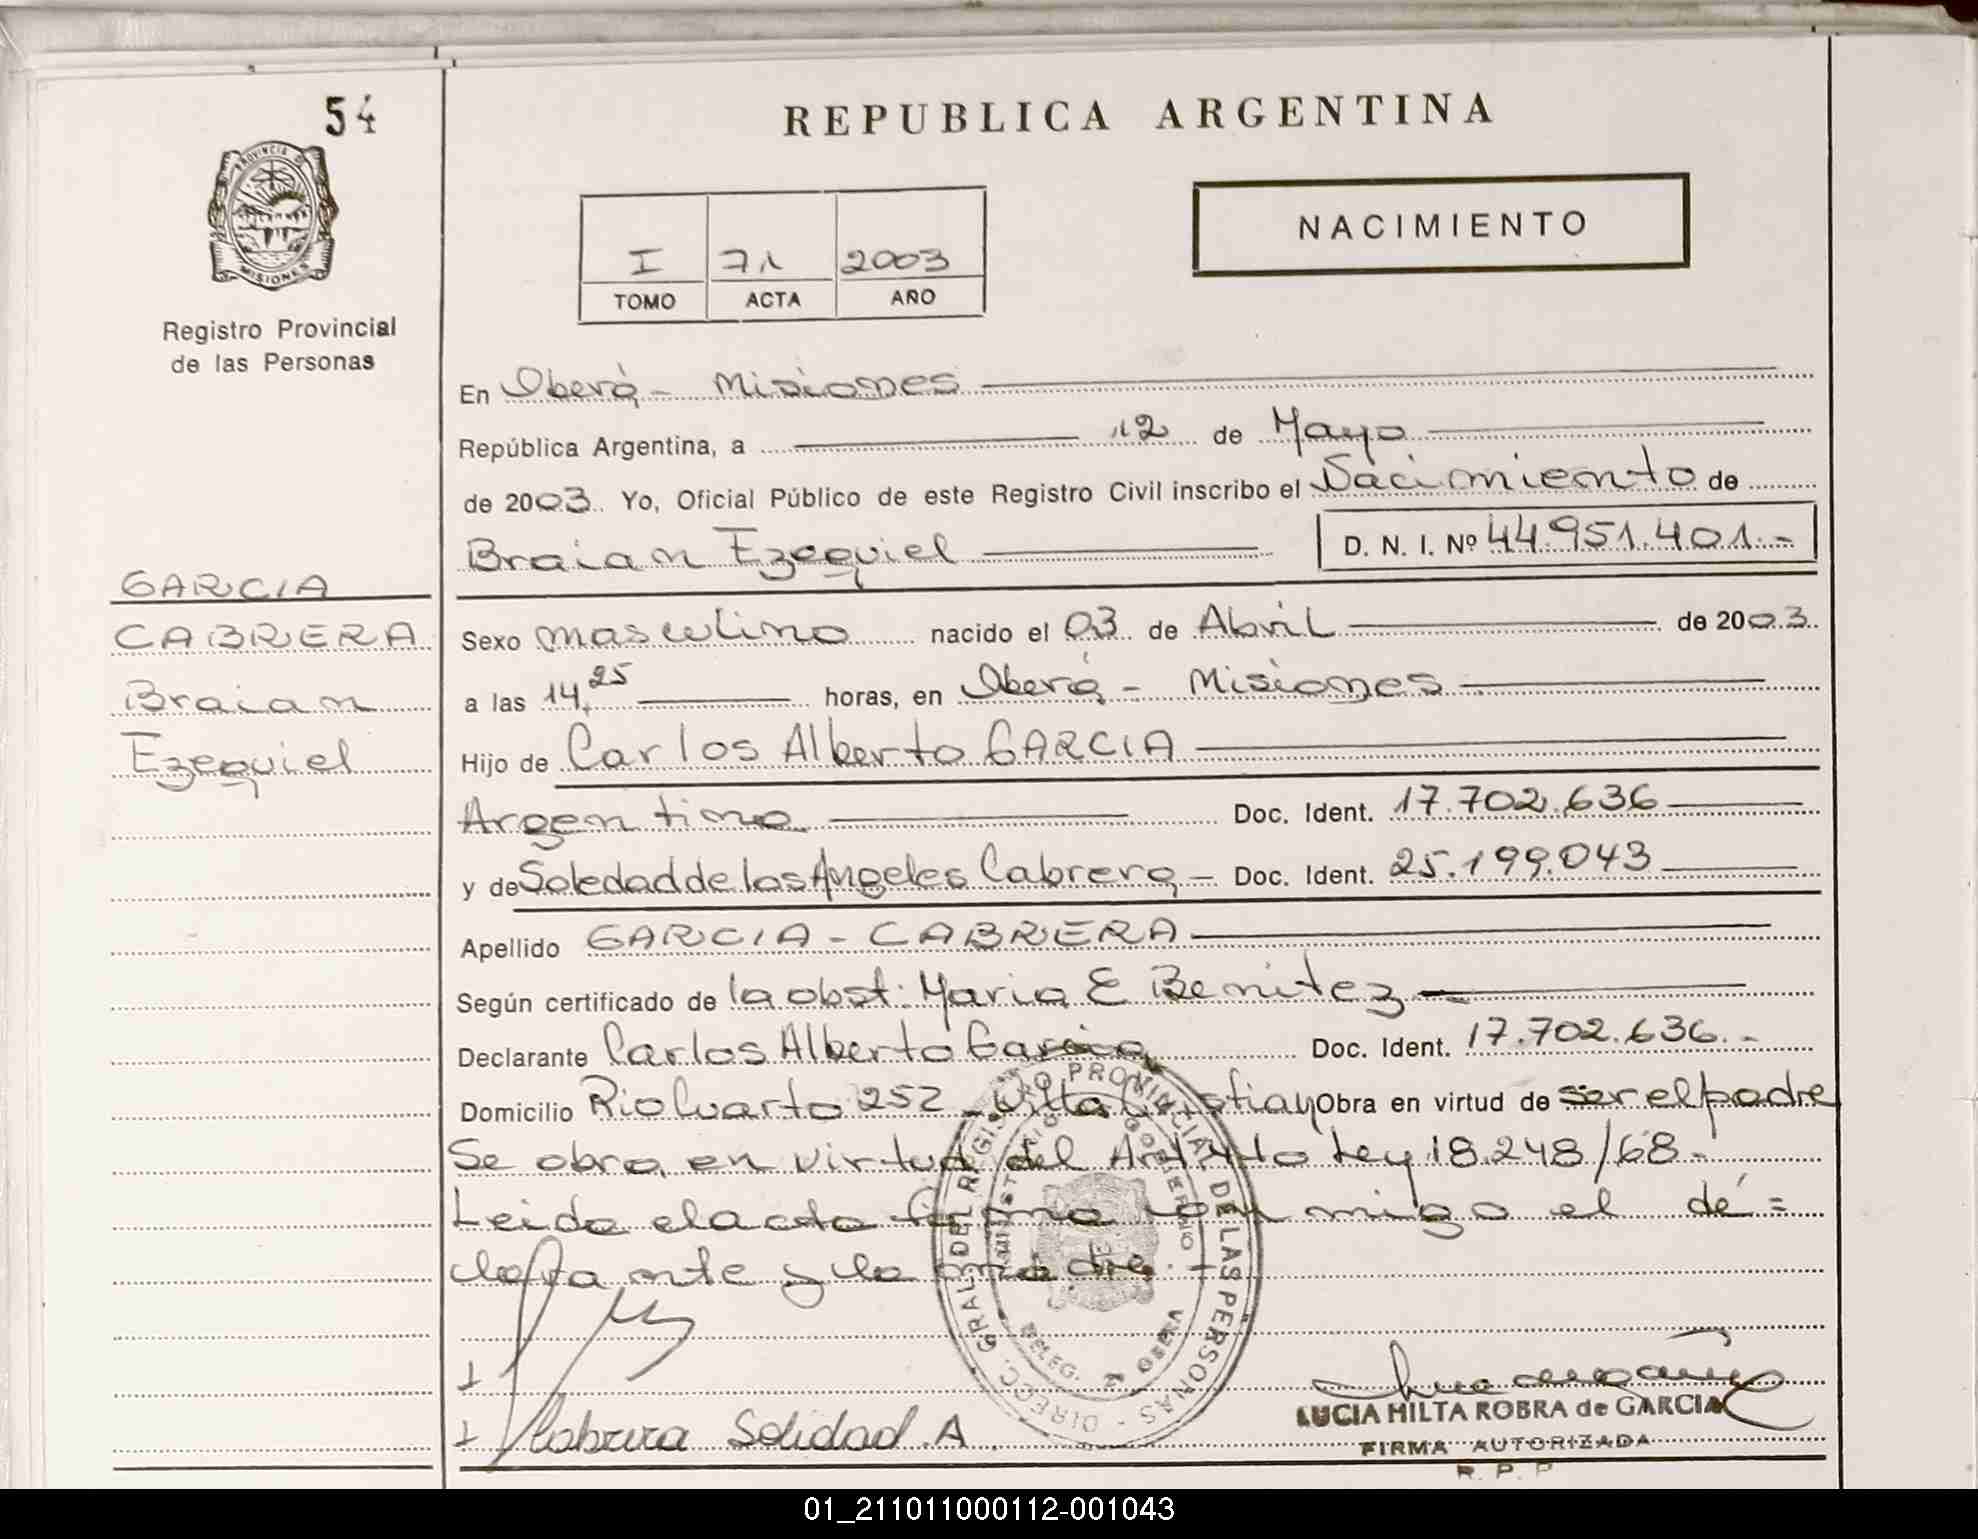 54
REPUBLICA ARGENTINA
PROVINCIA DE
MISIONES
Registro Provincial
de las Personas
I 71 2003
TOMO ACTA AÑO
NACIMIENTO
En Oberá - Misiones
República Argentina, a 12 de Mayo
de 2003. Yo, Oficial Público de este Registro Civil inscribo el Nacimiento de
Braian Ezequiel D. N. I. Nº 44.951.401.-
GARCIA
CABRERA
Braian
Ezequiel
Sexo masculino nacido el 03 de Abril de 2003.
a las 14,25 horas, en Oberá - Misiones
Hijo de Carlos Alberto GARCIA
Argentino Doc. Ident. 17.702.636
y de Soledad de los Angeles Cabrera - Doc. Ident. 25.199.043
Apellido GARCIA - CABRERA
Según certificado de la obst: Maria E Benitez
Declarante Carlos Alberto Garcia Doc. Ident. 17.702.636.-
Domicilio Rio Cuarto 252 - Villa Cristian Obra en virtud de ser el padre
Se obra en virtud del Ley 18.248/68-
Leida el acta firma con migo el dé=
clarante y la madre.-
DIRECC. GRAL. DEL REGISTRO PROVINCIAL DE LAS PERSONAS -
MINISTERIO GOBIERNO
DELEG. OBERA
Cabrera Soledad A
LUCIA HILTA ROBRA de GARCIA
FIRMA AUTORIZADA
R. P. P
01_211011000112-001043